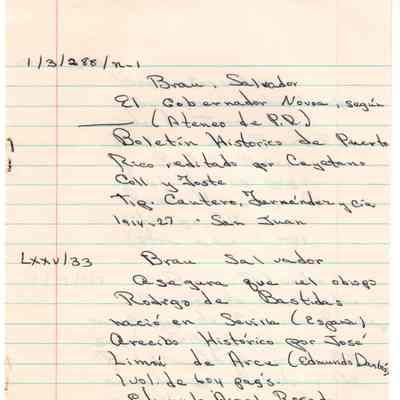 1/3/288/n-1
Brau, Salvador
El Gobernador Novoa, según
(Ateneo de P.R.)
Boletín Historico de Puerto
Rico reditado por Cayetano
Coll y Toste
Tip. Cantero, Fernández y cia
1914-27 - San Juan
LXXV/33 Brau Salvador
asegura que el obispo
Rodrgo de Bastidas
nació en Sevilla (España)
Arecibo Histórico por José
Limón de Arce (Edmundo Dantés)
1 vol. de 604 pags.